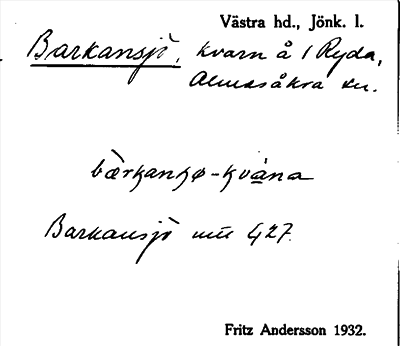 Västra hd., Jönk. l.
Barkansjö, kvarn å 1 Ryda,
Almesåkra sn.
Barkansjö
427.
Fritz Andersson 1932.